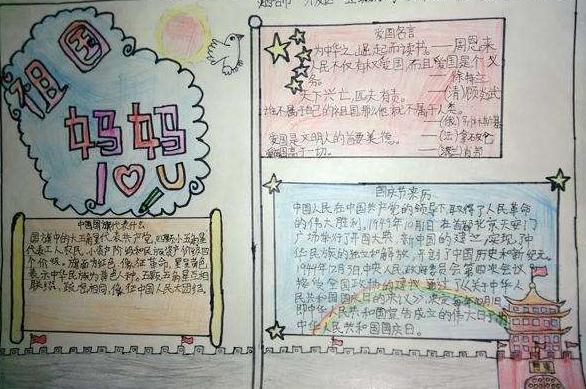 祖国
妈妈
I U
爱国名言
为中华之崛起而读书。——周恩来
人民不仅有权爱国,而且爱国是个义
务。——徐特立
天下兴亡,匹夫有责。——(清)顾炎武
谁不属于自己的祖国,那么他就不属于人类。
爱国是文明人的首要美德。——(法)拿破仑
爱国高于一切。——(波兰)肖邦
中国国旗代表什么
国旗中的大五角星代表共产党,四颗小五角星
代表工人、农民、小资产阶级和民族资产阶级四
个阶级。旗面为红色,象征革命,星呈黄色
表示中华民族为黄色人种。五颗五角星互相
联络,疏密相间,象征中国人民大团结。
国庆节来历
中国人民在中国共产党的领导下,取得了人民革命
的伟大胜利。1949年10月1日,在首都北京天安门
广场举行了开国大典,新中国的建立,实现了中
华民族的独立和解放,开创了中国历史的新纪元。
1949年12月3日,中央人民政府委员会第四次会议
接受全国政协的建议,通过了《关于中华人
民共和国国庆日的决议》,决定每年10月1日,
即中华人民共和国宣告成立的伟大日子,为
中华人民共和国国庆日。